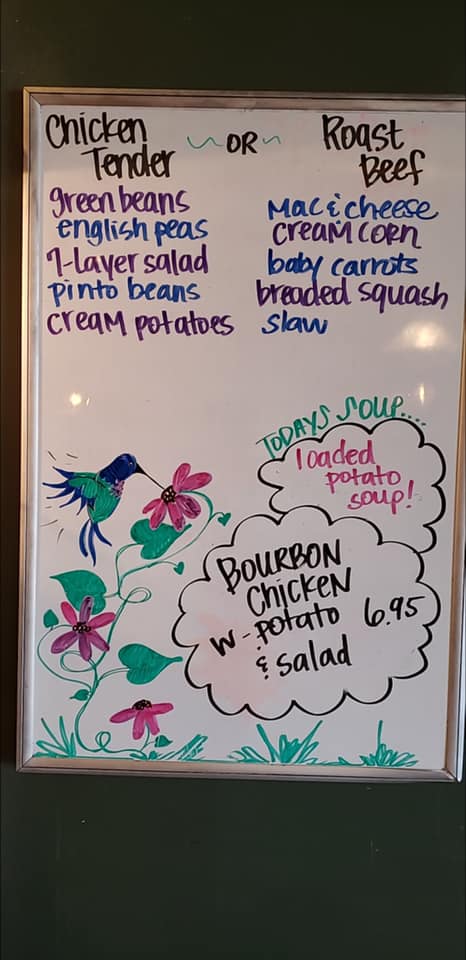 Chicken Tender OR Roast Beef
green beans
english peas
7-Layer salad
pinto beans
cream potatoes
Mac & cheese
cream corn
baby carrots
breaded squash
slaw
TODAYS SOUP....
loaded
potato
soup!
BOURBON
CHICKEN
W- potato 6.95
& salad